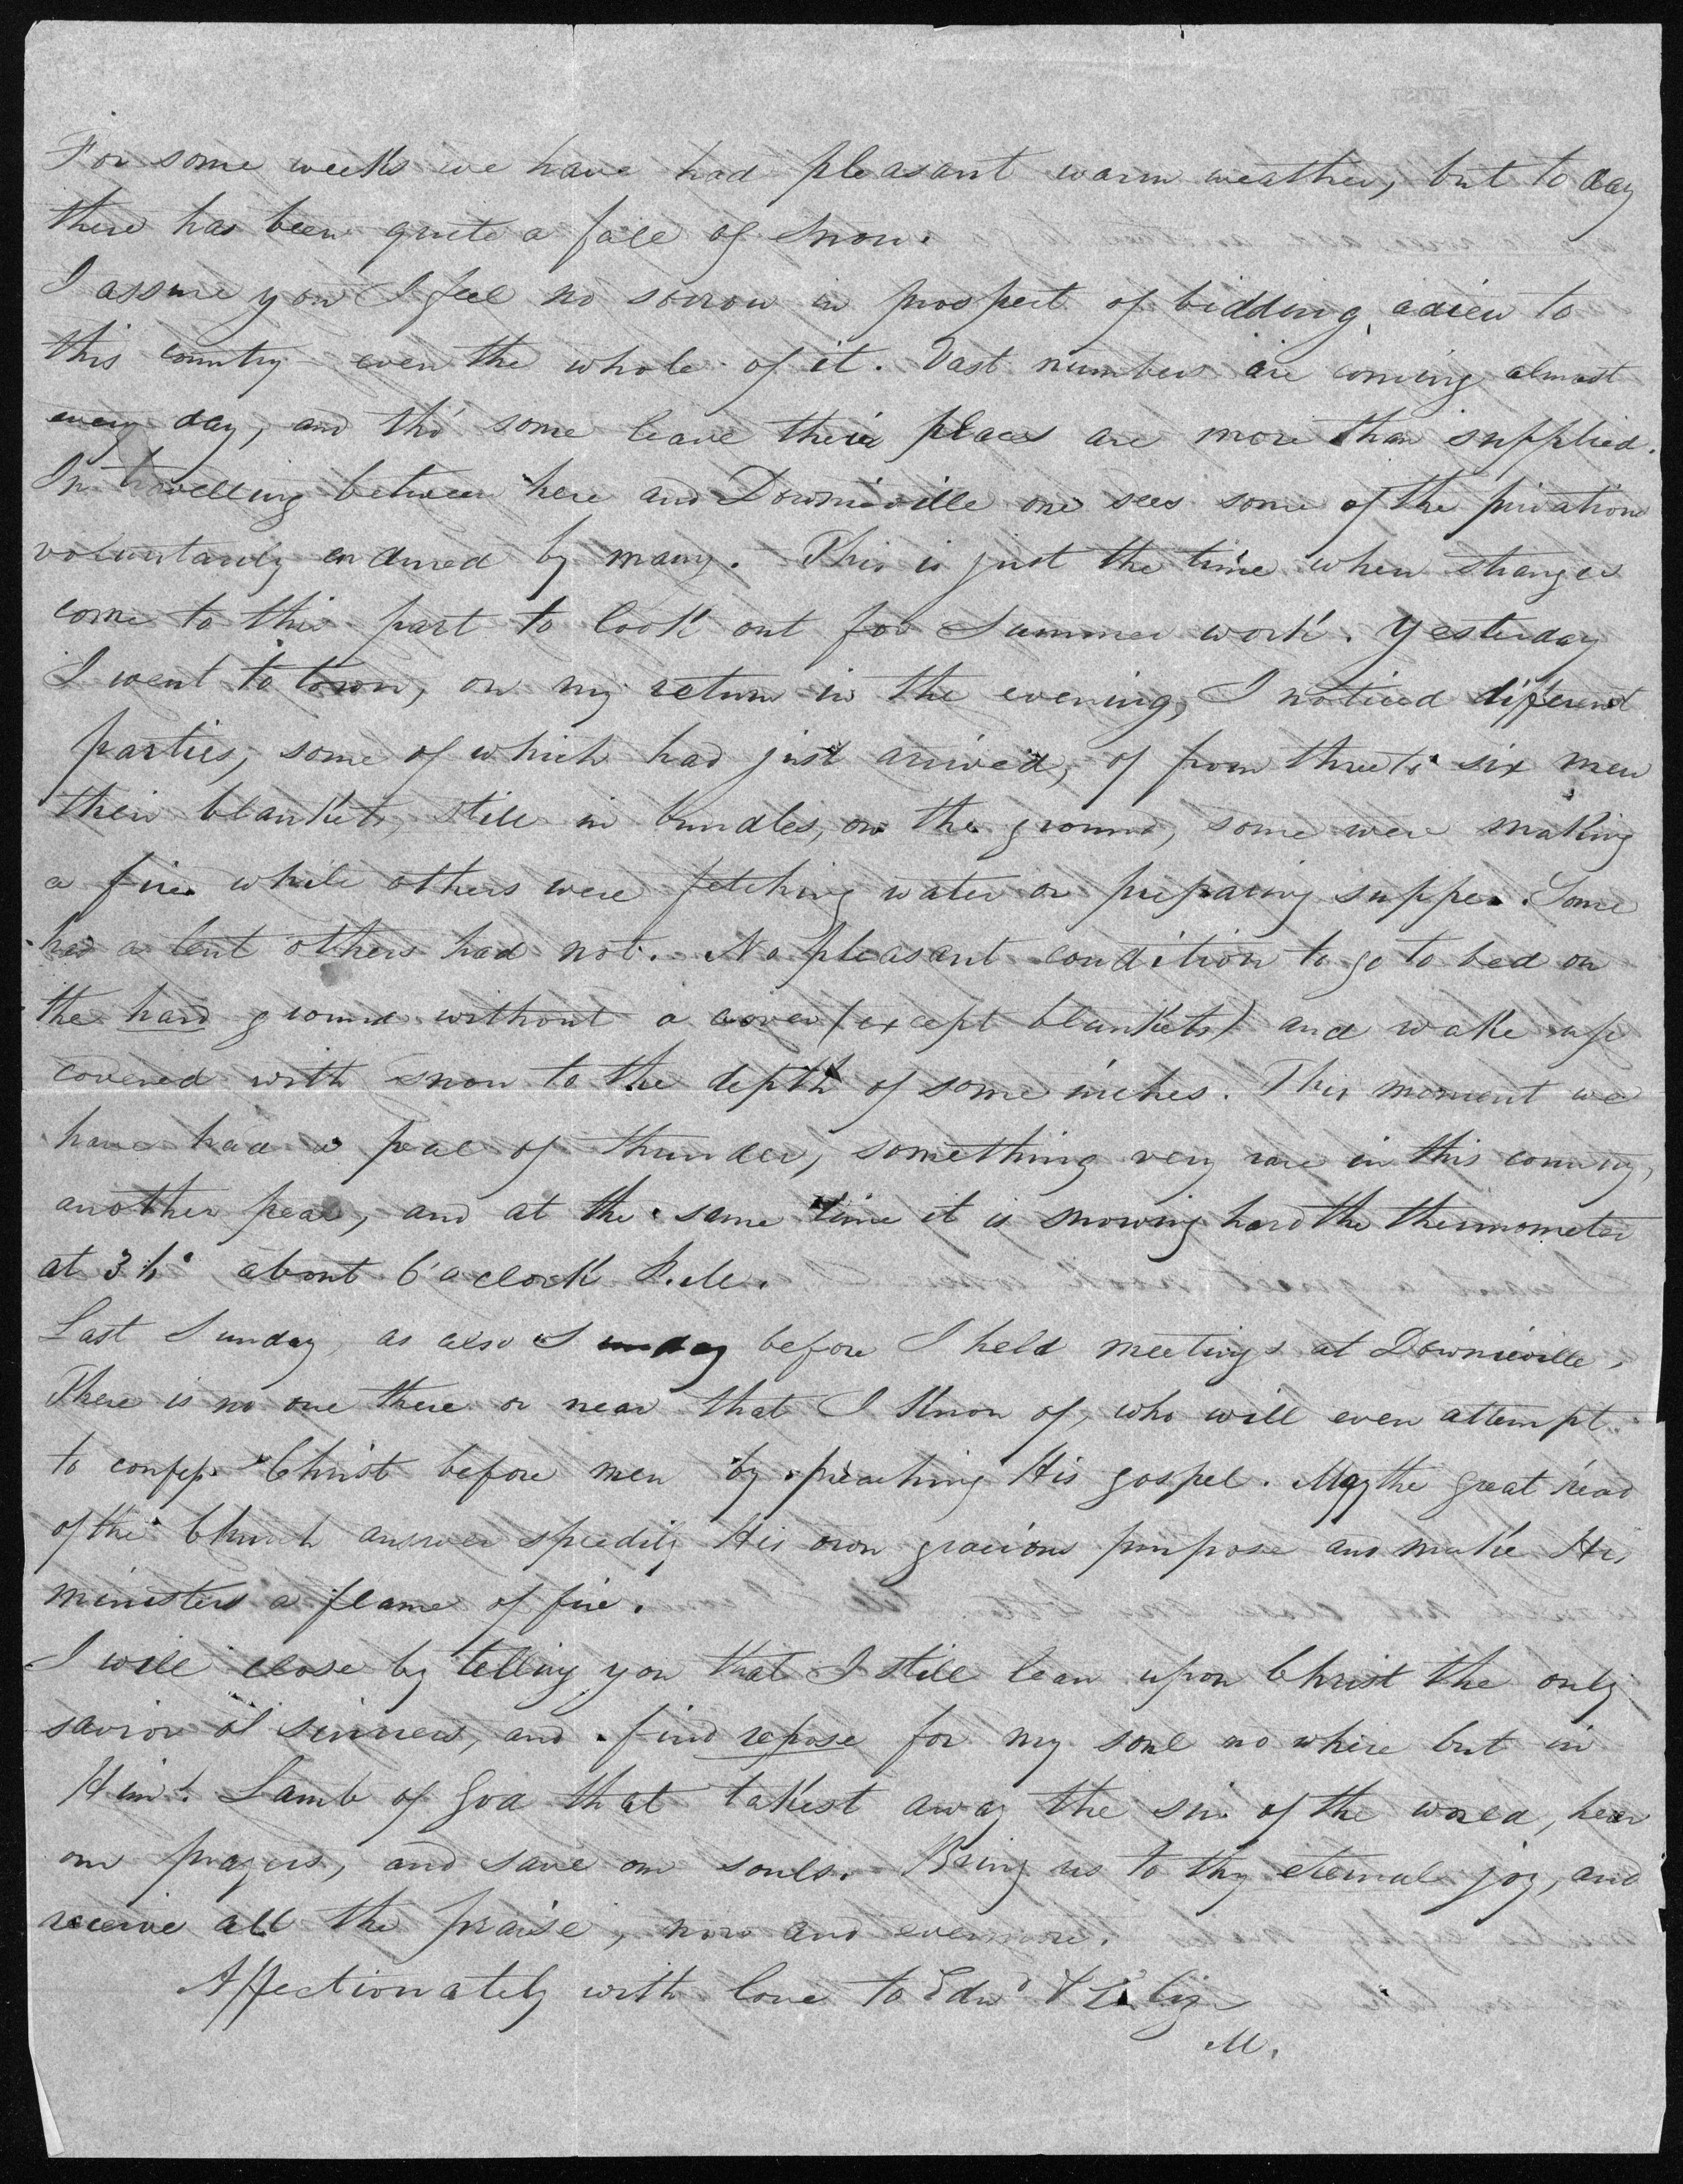 For some weeks we have had pleasant warm weather, but to day
there has been quite a fall of snow.
I assure you I feel no sorrow in prospect of bidding adieu to
this country even the whole of it. Vast numbers are coming almost
every day, and tho' some leave their places are more than supplied.
In travelling between here and Downieville one sees some of the privations
voluntarily endured by many. This is just the time when strangers
come to this part to look out for Summer work. Yesterday
I went to town, on my return in the evening, I noticed different
parties, some of which had just arrived, of from three to six men
their blankets, still in bundles, on the ground, some were making
a fire while others were fetching water or preparing supper. Some
had a tent others had not. No pleasant condition to go to bed on
the hard ground without a cover (except blankets) and wake up
covered with snow to the depth of some inches. This moment we
have had a peal of thunder, something very rare in this country,
another peal, and at the same time it is snowing hard the thermometer
at about 6 o'clock P.M.
Last Sunday, as also Sunday before I held meetings at Downieville.
There is no one there or near that I know of, who will even attempt
to confess Christ before men by preaching His gospel. May the great head
of the Church answer speedily His own gracious purpose and make His
ministers a flame of fire.
I will close by telling you that I still lean upon Christ the only
savior of sinners, and find repose for my soul no where but in
Him. Lamb of God that takest away the sin of the world, hear
our prayers, and save our souls. Bring us to thy eternal joy, and
receive all the praise, now and evermore.
Affectionately with love to Edwd &
M.